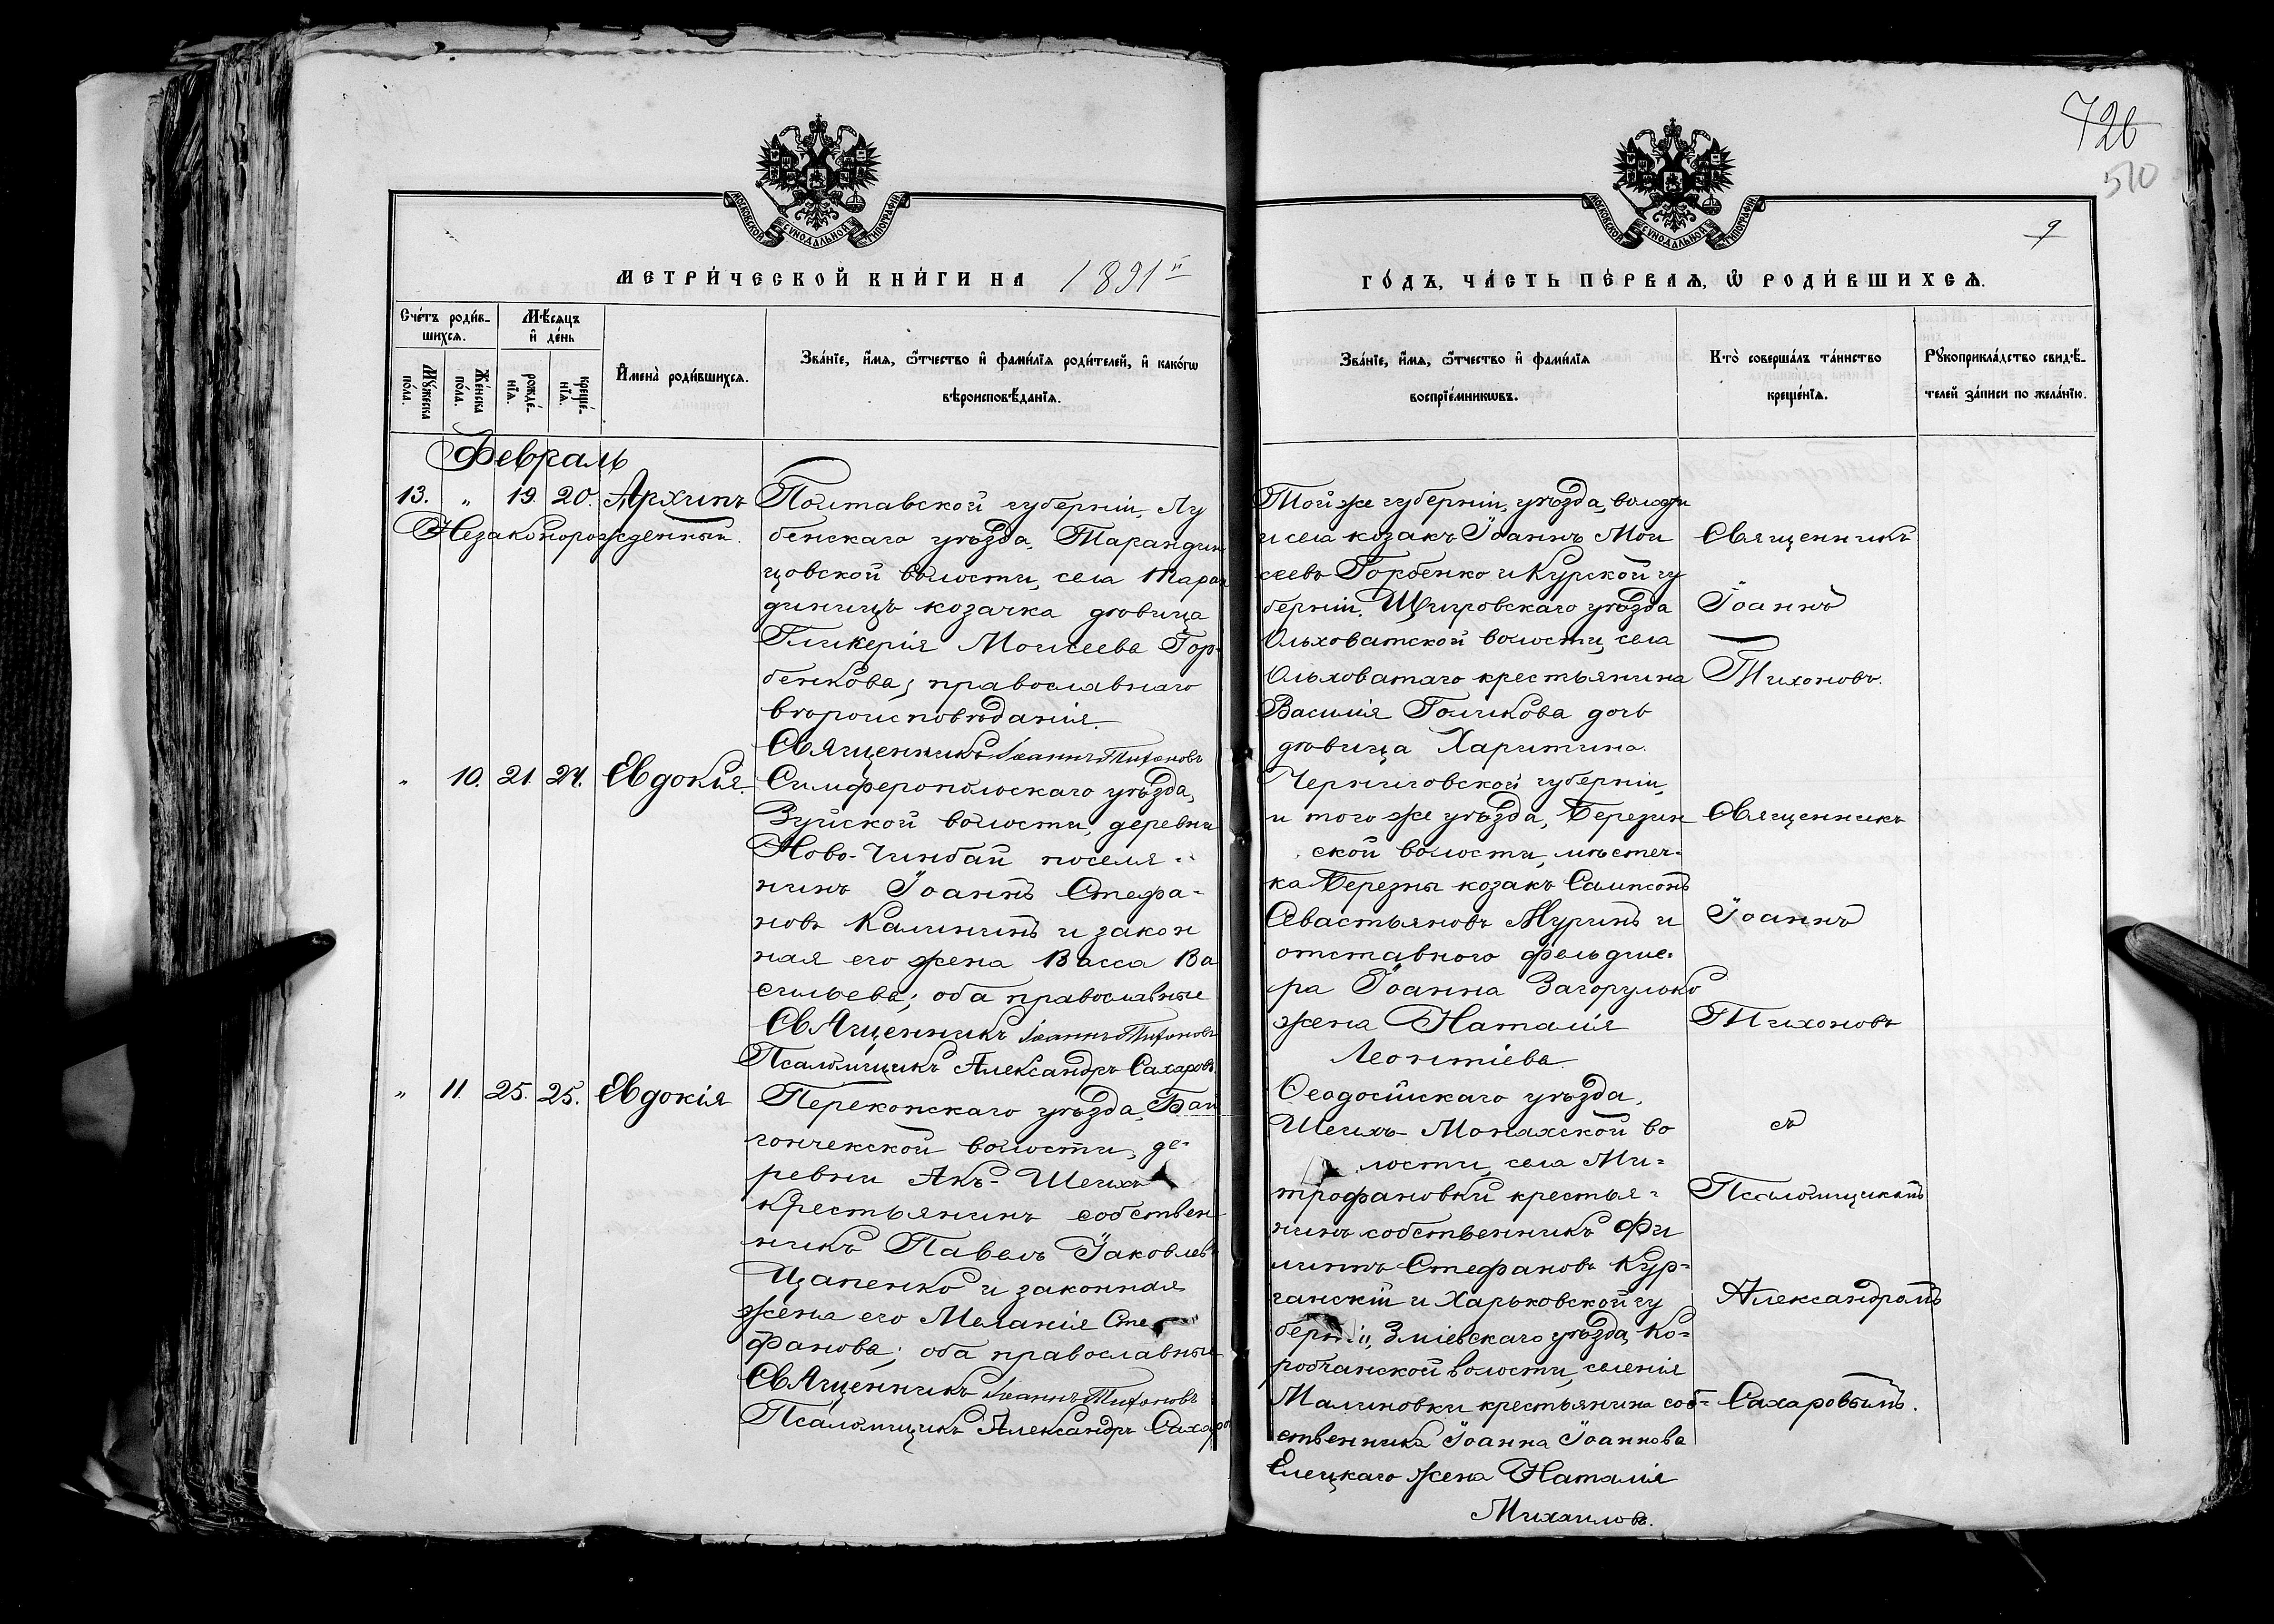 726
510
9
МОСКОВСКОЙ СѴНОДАЛЬНОЙ ТИПОГРАФІИ
МОСКОВСКОЙ СѴНОДАЛЬНОЙ ТИПОГРАФІИ
МЕТРИ́ЧЕСКОЙ КНИ́ГИ НА 1891й
ГО́ДЪ, ЧА́СТЬ ПЕ́РВАѦ, Ѿ РОДИ́ВШИХСѦ.
Сче́тъ роди́в-
шихсѧ.
Мѣ́сѧцъ
и҆ де́нь
Мꙋ́жеска
по́ла.
Же́нска
по́ла.
рожде́-
нїѧ.
креще́-
нїѧ.
И҆мена̀ роди́вшихсѧ.
Зва́нїе, и҆́мѧ, ѻ҆́тчество и҆ фами́лїѧ роди́телей, и҆ како́гѡ
вѣроисповѣ́данїѧ.
Зва́нїе, и҆́мѧ, ѻ҆́тчество и҆ фами́лїѧ
воспрїе́мникѡвъ.
Кто̀ соверша́лъ та́инство
креще́нїѧ.
Рꙋкоприкла́дство свидѣ́-
телей за́писи по жела́нїю.
Февраль
13. " 19. 20. Архипъ
Незаконорожденный.
Полтавской губерніи, Лу
бенскаго уѣзда, Тарандин
цовской волости, села Таран
динцъ козачка дѣвица
Гликерія Моисеева Гор-
бенкова; православнаго
вѣроисповѣданія.
Священникъ Іоаннъ Тихоновъ
Той же губерніи, уѣзда, волости
и села козакъ Іоаннъ Мои
сеевъ Горбенко и Курской гу
берніи, Щигровскаго уѣзда
Ольховатской волости, села
Ольховатаго крестьянина
Василія Голикова дочь
дѣвица Харитина.
Священникъ
Іоаннъ
Тихоновъ.
" 10. 21. 24. Евдокія.
Симферопольскаго уѣзда,
Зуйской волости, деревни
Ново-Чинбай поселя-
нинъ Іоаннъ Стефа-
новъ Калининъ и закон
ная его жена Васса Ва
сильева; оба православные
Священникъ Іоаннъ Тихоновъ
Псаломщикъ Александръ Сахаровъ.
Черниговской губерніи,
и того же уѣзда, Березин
ской волости, мѣстеч-
ка Березны козакъ Сампсонъ
Севастьяновъ Муринъ и
отставного фельдше-
ра Іоанна Загорулько
жена Наталія
Леонтіева.
Священникъ
Іоаннъ
Тихоновъ
" 11. 25. 25. Евдокія
Перекопскаго уѣзда, Бай
гончекской волости, де-
ревни Акъ-Шейхъ
крестьянинъ собствен
никъ Павелъ Іаковлев
Цапенко и законная
жена его Меланія Сте
фанова; оба православные
Священникъ Іоаннъ Тихоновъ
Псаломщикъ Александръ Сахаро
Ѳеодосійскаго уѣзда,
Шейхъ-Монахской во
лости, села Ми-
трофановки крестья-
нинъ собственникъ Фи
липпъ Стефановъ Кур-
ганскій и Харьковской гу
берніи, Зміевскаго уѣзда, Ко-
робчанской волости, селенія
Малиновки крестьянина соб-
ственника Іоанна Іоаннова
Елецкаго жена Наталія
Михаилова.
съ
Псаломщикомъ
Александромъ
Сахаровымъ.